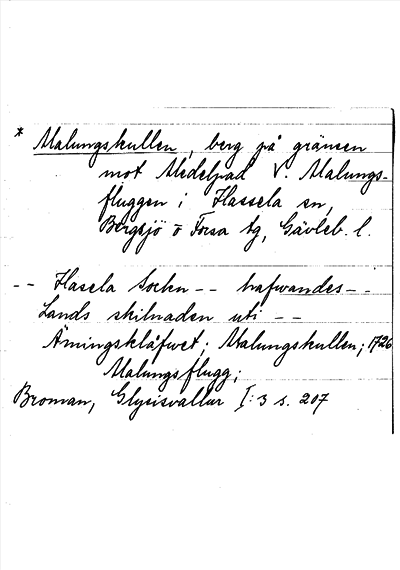 * Malungskullen, berg på gränsen
mot Medelpad V. Malungs-
fluggen i Hassela sn,
Bergsjö o Forsa tg, Gävleb. l.
-- Hasela Sockn -- hafwandes --
Lands skilnaden uti --
Ämingskläfwet; Malungskullen; 1726
Malungsflugg;
Broman, Glysisvallur I:3 s. 207